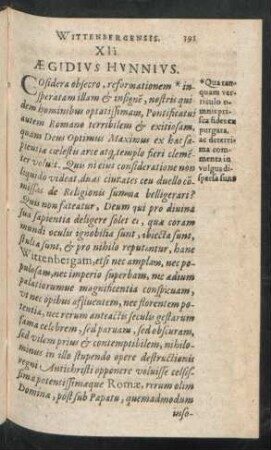 WITTENBERGENSIS. 191
XLI
ÆGIDIUS HVNNIVS.
COsidera obsecro, reformationem * in-
speratam illam & insignẽ, nostris qui
dem hominibus optatissimam, Pontificatui
autem Romano terribilem & exitiosam,
quam Deus Optimus Maximus ex hac sa-
pientiæ cœlestis arce atq; templo fieri clemẽ
ter voluit. Quis ni eius consideratione non
liquido videat, duas ciuitates ceu duello cõ
missas de Religionis summa belligerari?
Quis non fateatur, Deum qui pro diuina
sua sapientia deligere solet ei, quæ coram
mundi oculis ignobilia sunt, abiecta sunt,
stulta sunt, & pro nihilo reputantur, hanc
Wittenbergam, etsi nec amplam, nec po-
pulosam, nec imperio superbam, nec ædium
palatiorumue magnificentia conspicuam,
vt nec opibus affluentem, nec florentem po-
tentia, nec rerum anteactis seculis gestarum
fama celebrem, sed paruam, sed obscuram,
sed vilem prius & contemptibilem, nihilo-
minus in illo stupendo opere destructionis
regni Antichristi opponere voluisse celsis-
simæ potentissimæque Romæ, rerum olim
Dominæ, post sub Papatu, quemadmodum
inso-
* Qua tan-
quam ver-
riculo o-
mnis pri-
sca fidex
purgata,
ac deterri-
ma com-
menta in
vulgus di-
spersa sunt